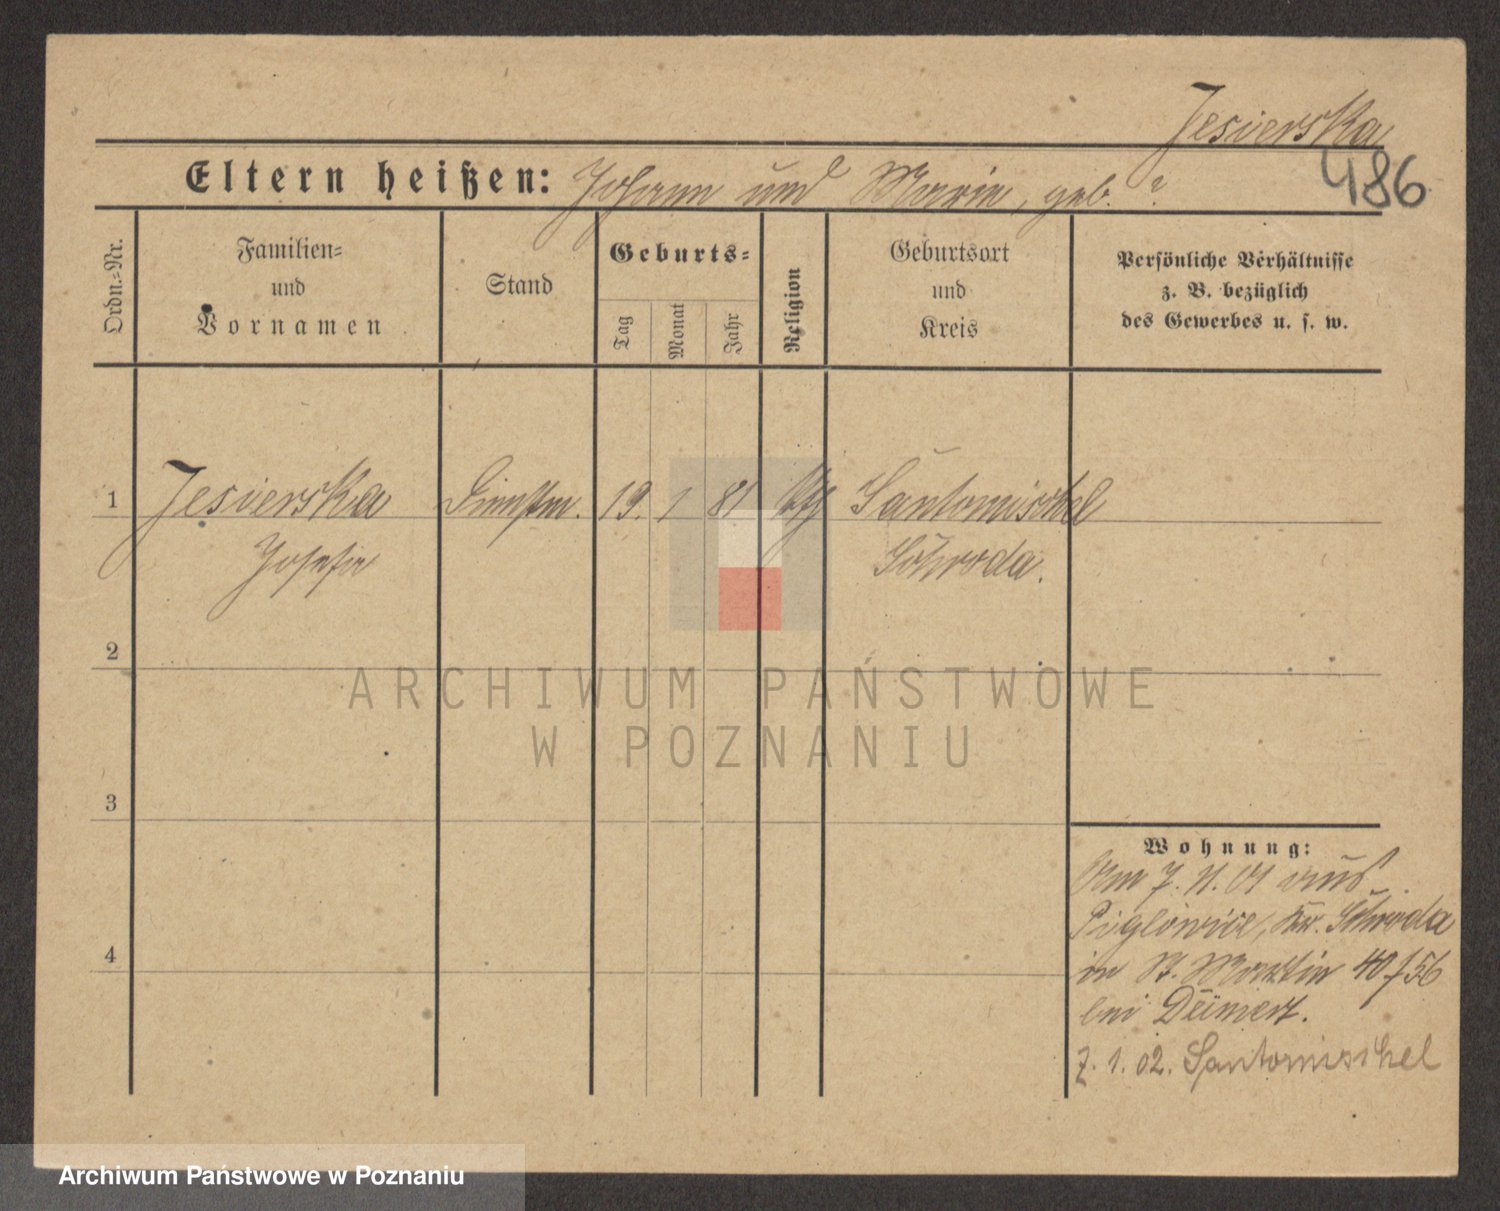 Jesierska
486
Eltern heißen: Johann und Marie, geb. ?
Ordn.-Nr.
Familien-
und
Vornamen
Stand
Geburts-
Tag
Monat
Jahr
Religion
Geburtsort
und
Kreis
Persönliche Verhältnisse
z. B. bezüglich
des Gewerbes u. s. w.
1 Jesierska Dienstm. 19. 1 81 kth Santomischel
Josefa Schroda.
2
ARCHIWUM PAŃSTWOWE
W POZNANIU
3
Wohnung:
Am 7. 11. 01 aus
Piglowice, Kr. Schroda
in St. Martin 40/56
bei Deimert.
4
7. 1. 02. Santomischel
Archiwum Państwowe w Poznaniu